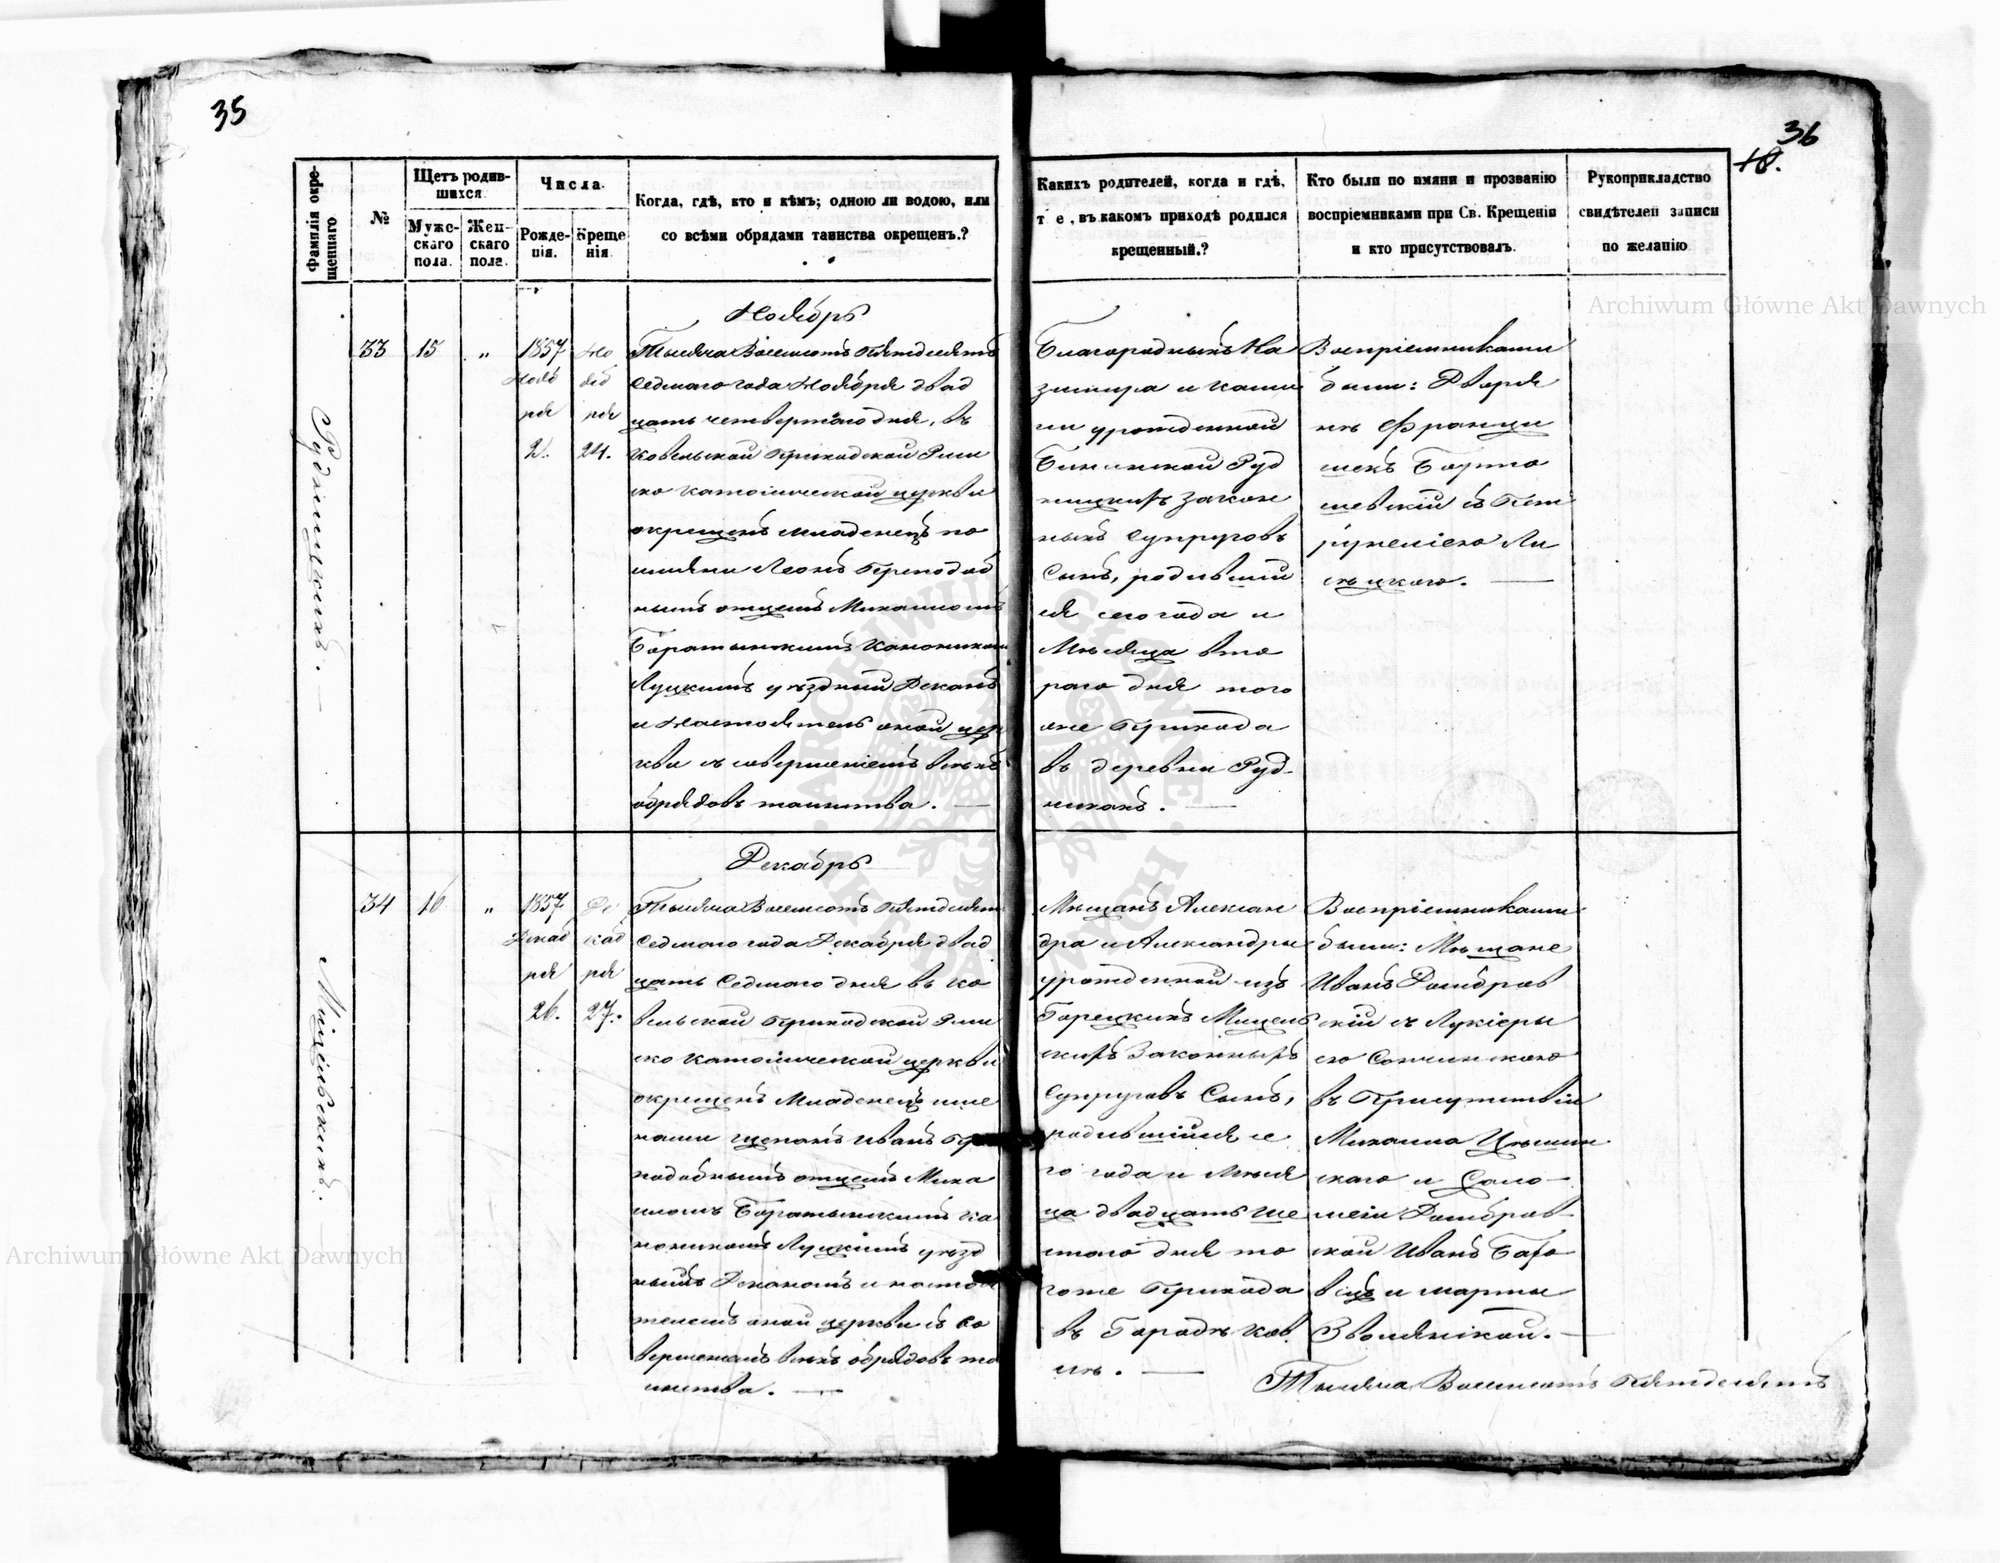 35
36
10.
Фамилія окре-
щеннаго
№
Щетъ родив-
шихся.
Мужс-
скаго
пола.
Жен-
скаго
пола.
Числа.
Рожде-
нія.
Креще
нія.
Когда, гдѣ, кто и кѣмъ; одною ли водою, или
со всѣми обрядами таинства окрещенъ.?
Какихъ родителей, когда и гдѣ,
т е, въ какомъ приходѣ родился
крещенный.?
Кто были по имяни и прозванію
воспріемниками при Св. Крещеніи
и кто присутствовалъ.
Рукоприкладство
свидѣтелей записи
по желанію
Рудницкихъ.
33
15
"
1857
Нояб
ря
2.
Но
яб
ря
24.
Ноябрь
Тысяча Восемсотъ Пятдесятъ
седмаго года Ноября двад
цать четвертаго дня, въ
Ковельской Приходской Рим
ско католической церкви
окрещенъ младенецъ по
имяни Леонъ Преподоб
нымъ отцемъ Михаиломъ
Баратынскимъ Каноникомъ
Луцкимъ уѣздный Деканъ
и Настоятель оной цер
кви съ совершеніемъ всѣхъ
обрядовъ таинства.
Благородныхъ Ка
зимира и
урожденной
Руд
ницкихъ закон
ныхъ Супруговъ
Сынъ, родивший
ся сего года и
Мѣсяца вто
раго дня того
же Прихода
въ деревни Руд-
никахъ.
Воспріемниками
были: Дворя
нъ Франци
шекъ Барто
шевскій съ Пет
рунелею Ли
сѣцкою.
Мицельскихъ.
34
16
"
1857
Декаб
ря
26.
Де
каб
ря
27.
Декабрь
Тысяча Восемсотъ Пятдесятъ
седмаго года Декабря двад
цать Седмаго дня въ Ко
вельской Приходской Рим
ско католической церкви
окрещенъ Младенецъ име
нами Щепанъ Иванъ Пре
подобнымъ отцемъ Миха
иломъ Баратынскимъ Ка
ноникомъ Луцкимъ уѣзд
нымъ Деканомъ и настоя
телемъ оной церкви съ со
вершеніемъ всѣхъ обрядовъ та
инства.
Мѣщанъ Алексан
дра и Александры
урожденной изъ
Борецкихъ Мицель
скихъ Законныхъ
Супруговъ Сынъ,
родившійся се
го года и Мѣся
ца двадцать ше
стаго дня то
гоже Прихода
въ Городѣ Ков
лѣ.
Воспріемниками
были: Мѣщане
Иванъ Домбров
скій съ Лукіеры
ею Сочинскою
въ Присутствіи
Михаила
скаго и Сало-
меи Домбров
ской Иванъ
и Марты
Тысяча Восемсотъ Пятдесятъ
Archiwum Główne Akt Dawnych
Archiwum Główne Akt Dawnych
ARCHIWUM GŁÓWNE AKT DAWNYCH